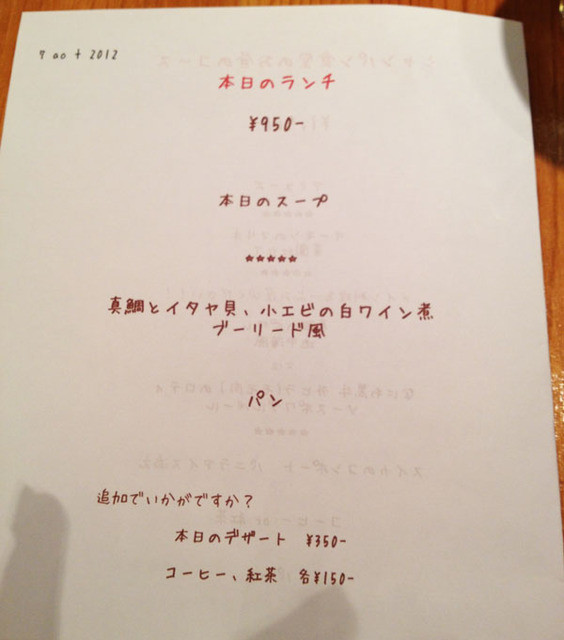 7 aoÛt 2012
本日のランチ
¥950-
本日のスープ
*****
真鯛とイタヤ貝、小エビの白ワイン煮
ブーリード風
パン
追加でいかがですか?
本日のデザート ¥350-
コーヒー、紅茶 各¥150-